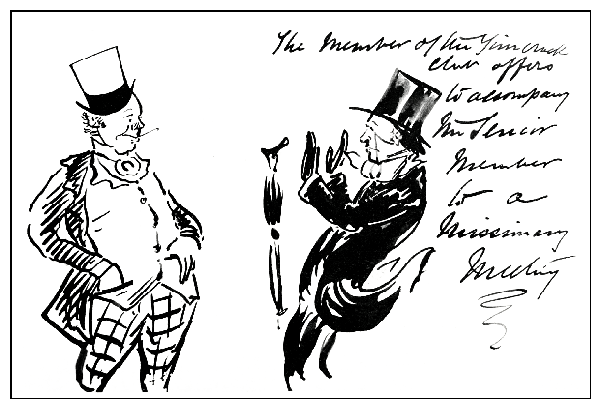 The Member of the Gimcrack
Club offers
to accompany
the Senior
Member
to a
Missionary
Meeting